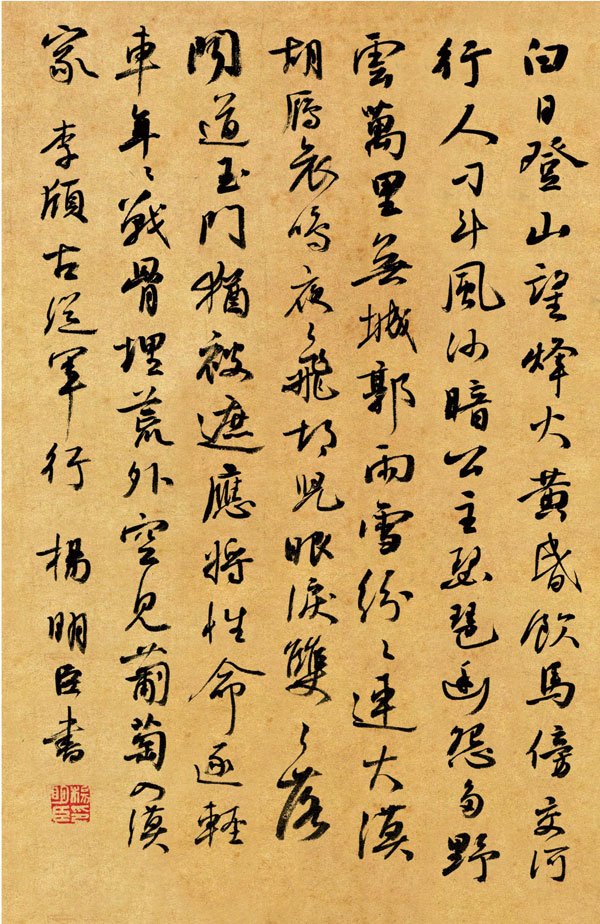 白日登山望烽火黃昏飲馬傍交河
行人刁斗風沙暗公主琵琶幽怨多野
雲萬里無城郭雨雪紛〻連大漠
胡鴈哀鳴夜〻飛胡兒眼淚雙〻落
聞道玉門猶被遮應將性命逐輕
車年〻戰骨埋荒外空見葡萄入漢
家 李頎古從軍行 楊明臣書